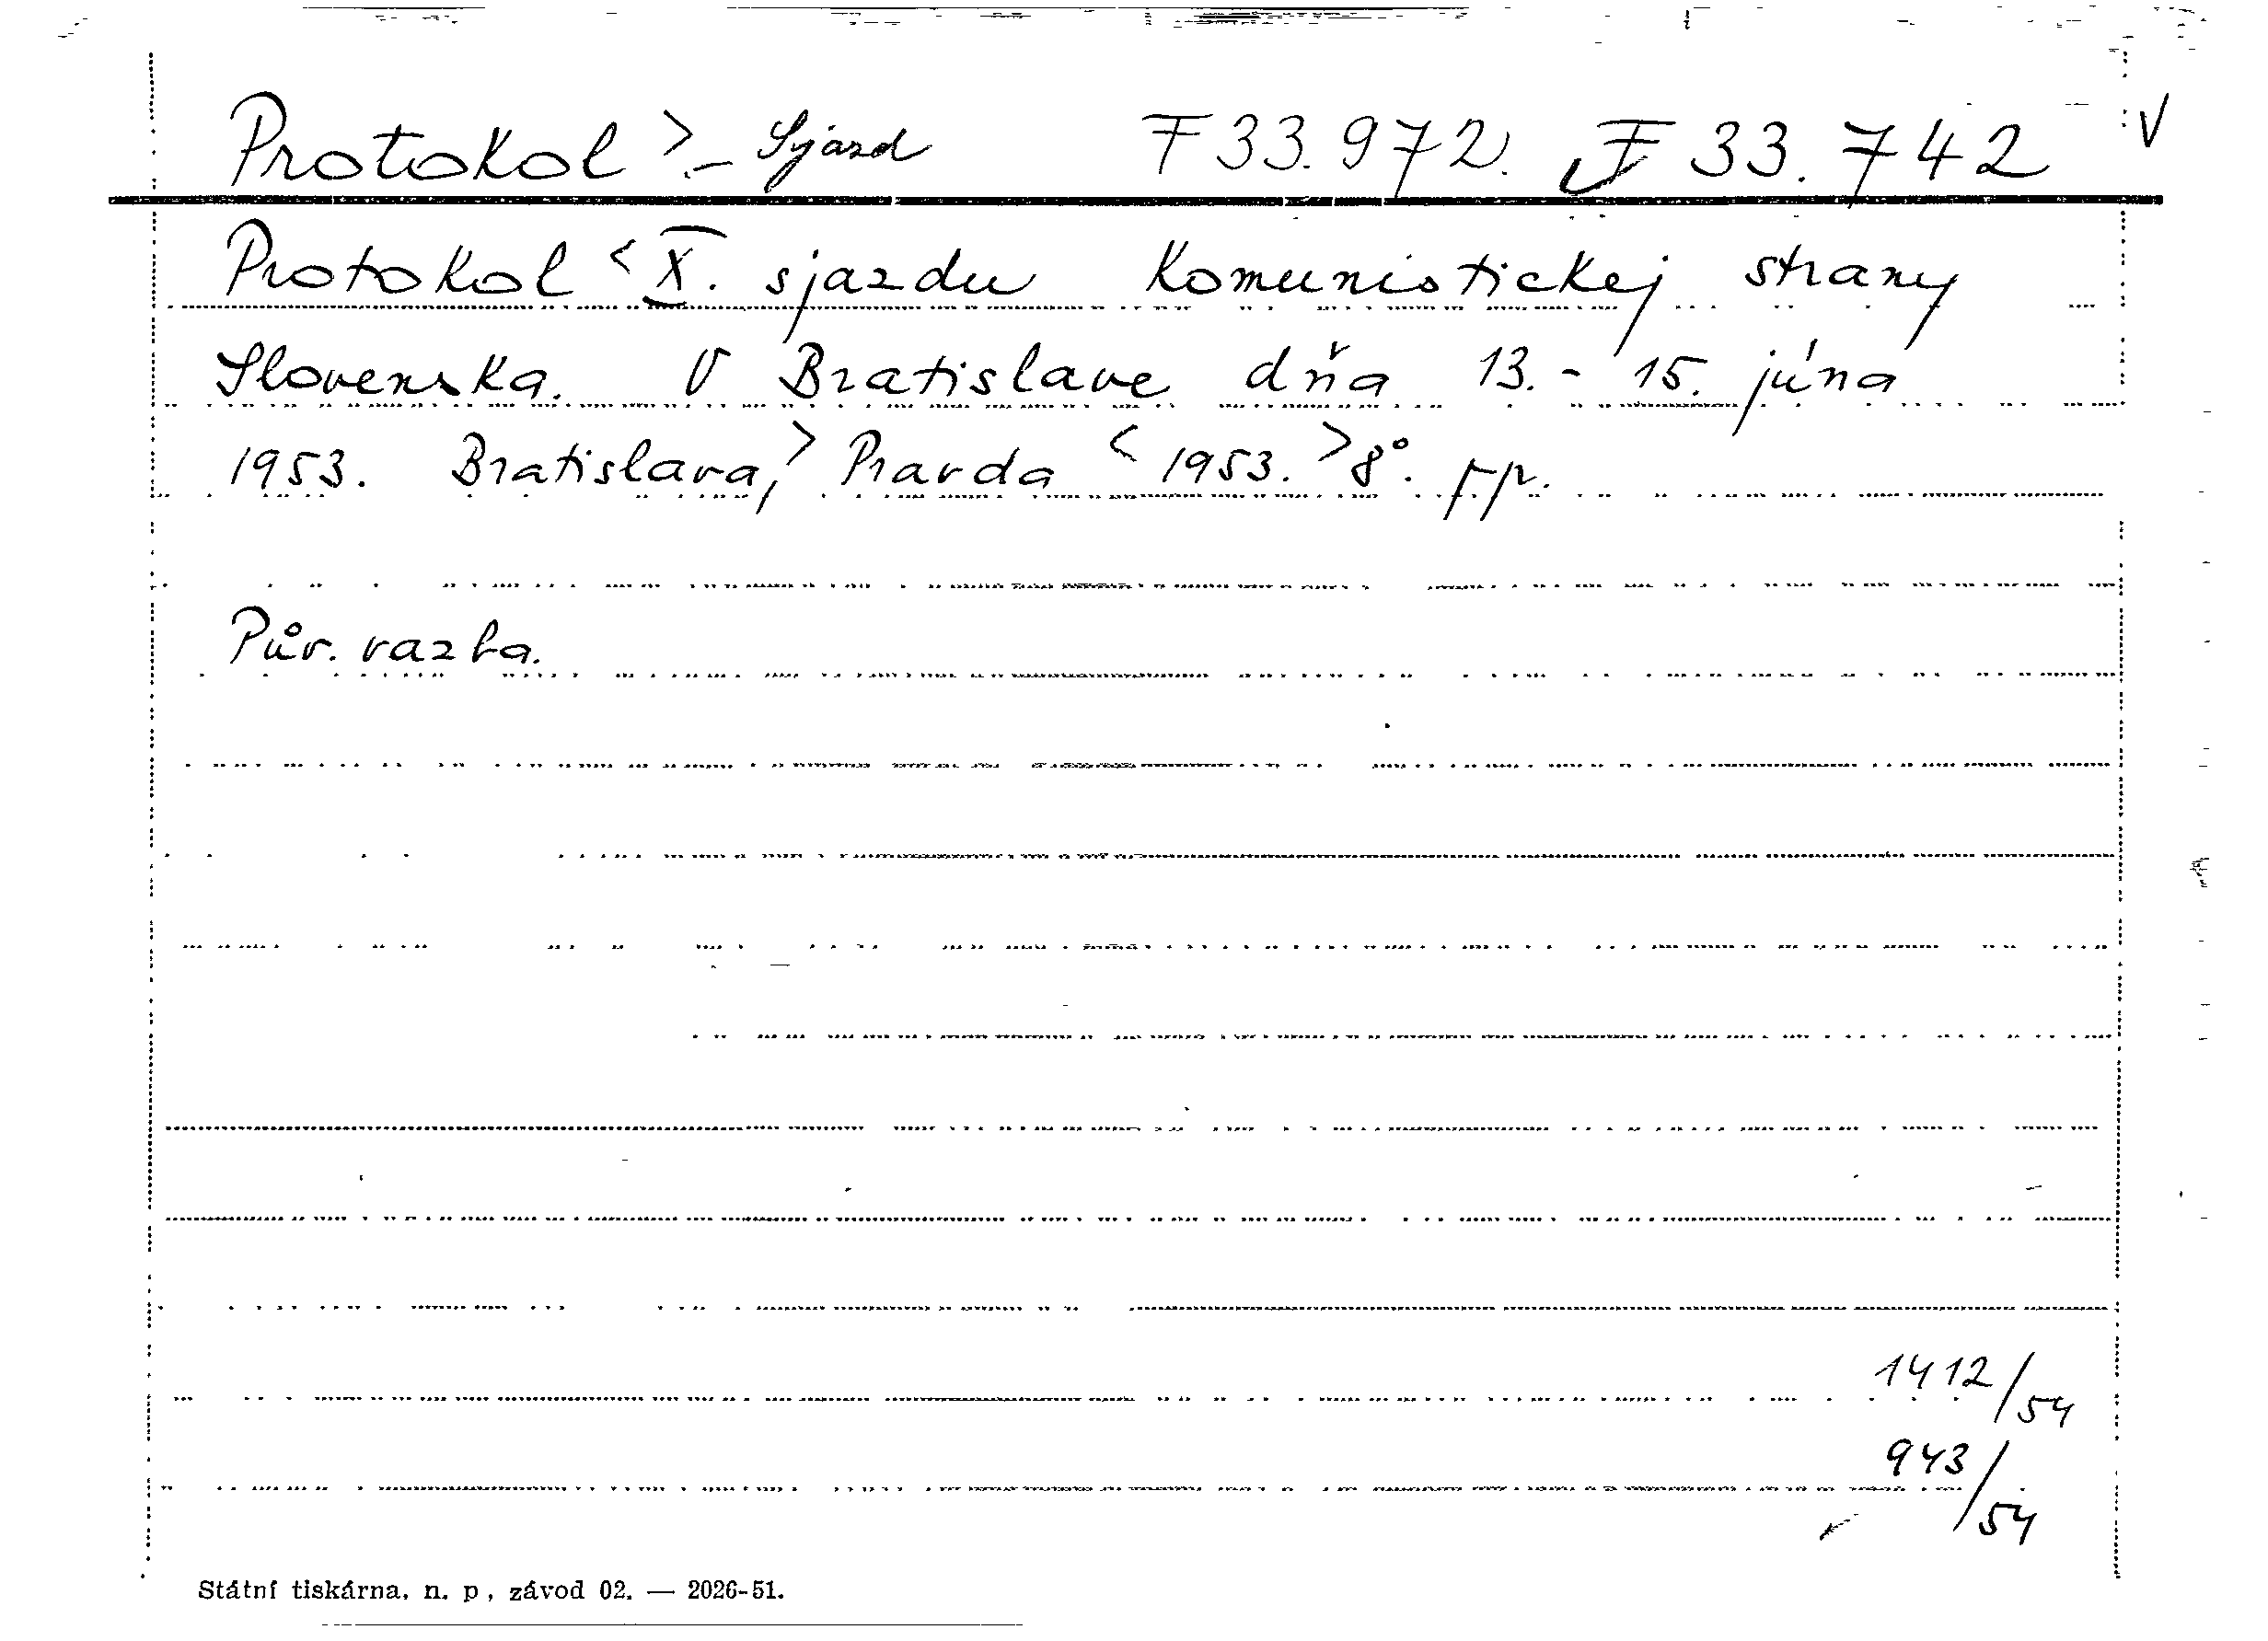 Protokol >.- Sjazd F 33.972. F 33.742 V
Protokol < X. sjazdu Komunistickej strany
Slovenska. V Bratislave dňa 13.- 15. júna
1953. Bratislava,> Pravda < 1953. > 8°.
Pův. vazba.
1412/54
943/54
Státní tiskárna, n. p., závod 02. — 2026-51.